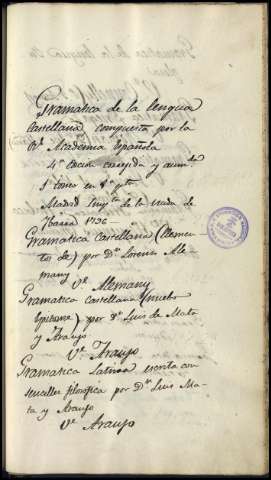 Gramatica de la lengua
Castellana compuesta por la
Rl. Academia Española
4ª edicion corregida y aumda.
Madrid
Ibarra 1796
Gramatica Castellana (Elemen-
tos de) por Dn. Lorenzo Ale-
many
Ve. Alemany
Gramatica Castellana (nuebo
Epitome) por Dn. Luis de Mata
y Araujo
Ve. Araujo
Gramatica Latina escrita con
sencillez filosofica por Dn. Luis Ma-
ta y Araujo
Ve. Araujo